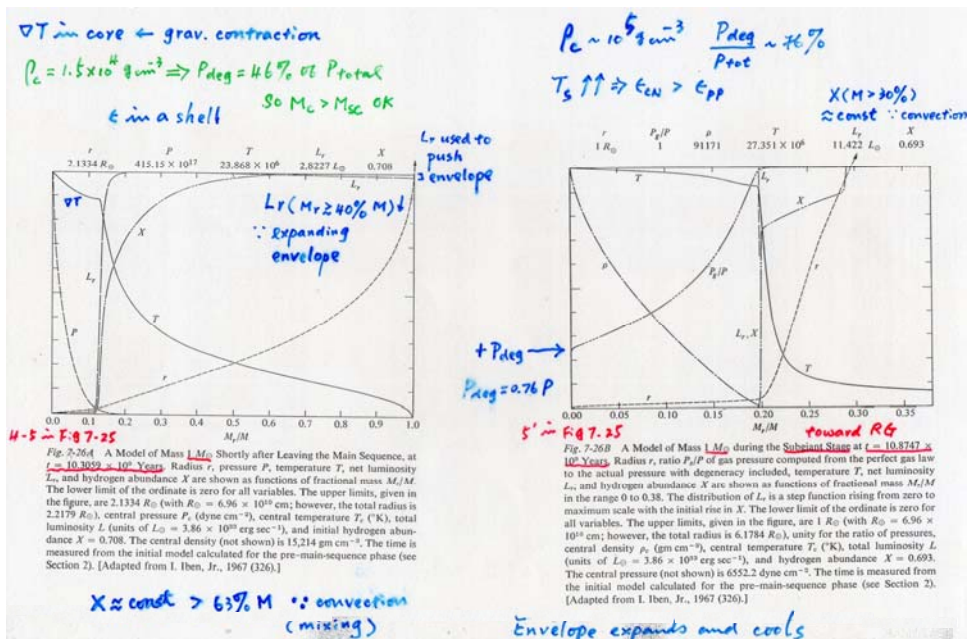 ∇T in core ← grav. contraction
ρc = 1.5×10⁴ g cm⁻³ ⇒ Pdeg = 46% of Ptotal
So Mc > Msc OK
ε in a shell
Lr used to
push
envelope
r P T Lr X
2.1334 R⊙ 415.15 × 10¹⁷ 23.868 × 10⁶ 2.8227 L⊙ 0.708
∇T
Lr (Mr ≥ 40% M)↓
∵ expanding
envelope
Lr
X
Lr
P
T
r
0.0 0.1 0.2 0.3 0.4 0.5 0.6 0.7 0.8 0.9 1.0
Mr/M
4-5 in Fig 7-25
Fig. 7-26A A Model of Mass 1 M⊙ Shortly after Leaving the Main Sequence, at
t = 10.3059 × 10⁹ Years. Radius r, pressure P, temperature T, net luminosity
Lr, and hydrogen abundance X are shown as functions of fractional mass Mr/M.
The lower limit of the ordinate is zero for all variables. The upper limits, given in
the figure, are 2.1334 R⊙ (with R⊙ = 6.96 × 10¹⁰ cm; however, the total radius is
2.2179 R⊙), central pressure Pc (dyne cm⁻²), central temperature Tc (°K), total
luminosity L (units of L⊙ = 3.86 × 10³³ erg sec⁻¹), and initial hydrogen abun-
dance X = 0.708. The central density (not shown) is 15,214 gm cm⁻³. The time is
measured from the initial model calculated for the pre-main-sequence phase (see
Section 2). [Adapted from I. Iben, Jr., 1967 (326).]
X ≈ const > 63% M ∵ convection
(mixing)
ρc ~ 10⁵ g cm⁻³ Pdeg/Ptot ~ 76%
Ts ↑↑ ⇒ εCN > εpp
X (M > 30%)
≈ const ∵ convection
r Pg/P ρ T Lr X
1 R⊙ 1 91171 27.351 × 10⁶ 11.422 L⊙ 0.693
T
Lr
X
ρ
Pg/P
r
Lr, X
T
r
+ Pdeg →
Pdeg = 0.76 P
0.00 0.05 0.10 0.15 0.20 0.25 0.30 0.35
Mr/M
5' in Fig 7.25
toward RG
Fig. 7-26B A Model of Mass 1 M⊙ during the Subgiant Stage at t = 10.8747 ×
10⁹ Years. Radius r, ratio Pg/P of gas pressure computed from the perfect gas law
to the actual pressure with degeneracy included, temperature T, net luminosity
Lr, and hydrogen abundance X are shown as functions of fractional mass Mr/M
in the range 0 to 0.38. The distribution of Lr is a step function rising from zero to
maximum scale with the initial rise in X. The lower limit of the ordinate is zero for
all variables. The upper limits, given in the figure, are 1 R⊙ (with R⊙ = 6.96 ×
10¹⁰ cm; however, the total radius is 6.1784 R⊙), unity for the ratio of pressures,
central density ρc (gm cm⁻³), central temperature Tc (°K), total luminosity L
(units of L⊙ = 3.86 × 10³³ erg sec⁻¹), and hydrogen abundance X = 0.693.
The central pressure (not shown) is 6552.2 dyne cm⁻². The time is measured from
the initial model calculated for the pre-main-sequence phase (see Section 2).
[Adapted from I. Iben, Jr., 1967 (326).]
Envelope expands and cools